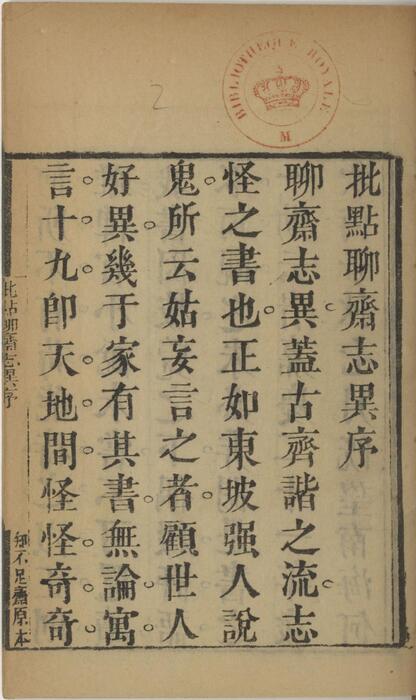 批點聊齋志異序
聊齋志異蓋古齊諧之流志
怪之書也正如東坡强人說
鬼所云姑妄言之者顧世人
好異幾于家有其書無論寓
言十九卽天地間怪怪奇奇
批點聊齋志異序
知不足齋原本
BIBLIOTHEQUE ROYALE
M
2